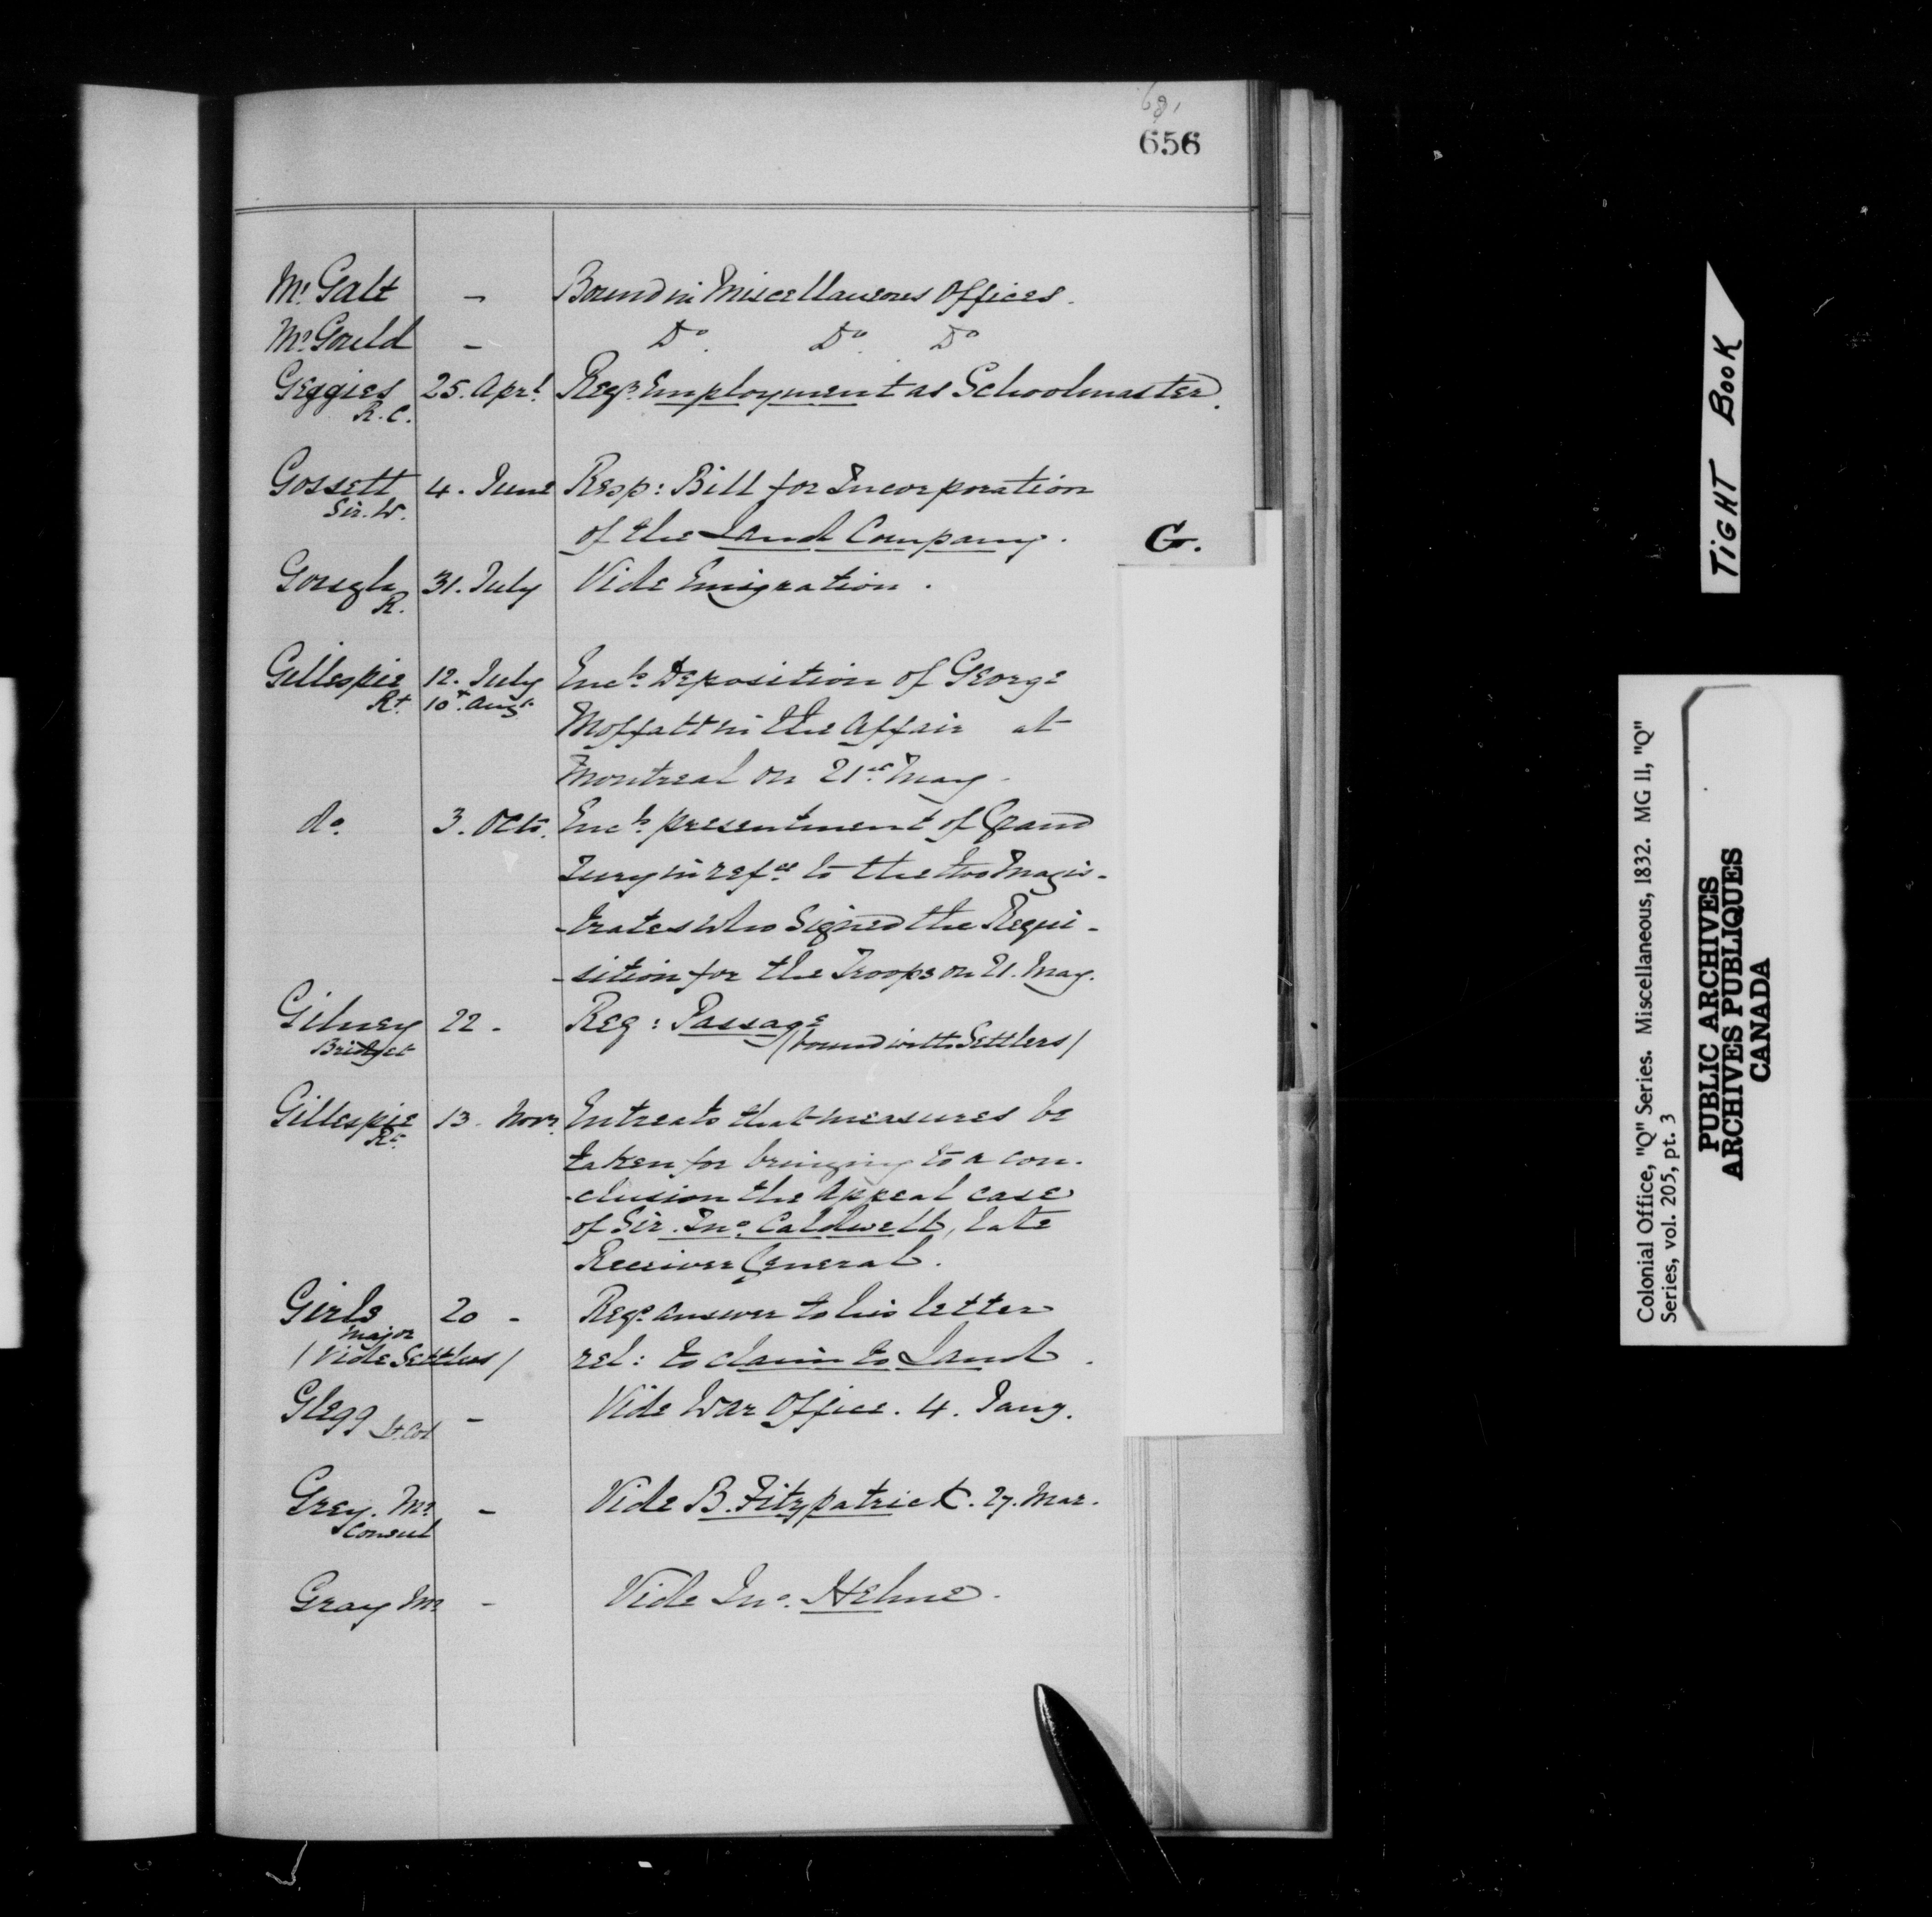 681
656
Mr. Galt - Bound in Miscellaneous Offices.
Mr. Gould - Do. Do. Do
Geggies 25. Aprl. Reqg. Employment as Schoolmaster.
R. C.
Gossett 4. June Resp: Bill for Incorporation
Sir. W.
of the Land Company.
G.
Gough 31. July Vide Emigration.
R.
Gillespie 12. July Encg. Deposition of George
Rt. 10t. Augt.
Moffatt in the Affair at
Montreal on 21st. May.
do. 3. Octo. Encg. presentment of Grand
Jury in refce to the two Magis-
-trates who Signed the Requi-
-sition for the Troops on 21. May.
Gilney 22 - Req: Passage
Bridget /bound with Settlers/
Gillespie 13. Novr. Entreats that measures be
Rt.
taken for bringing to a con-
-clusion the Appeal case
of Sir. Jno. Caldwell, late
Receiver General.
Girls 20 - Reqg. answer to his letter
Major
/Vide Settlers/ rel: to claim to Land.
Glegg Lt. Col - Vide War Office. 4. Jany.
Grey. Mr. - Vide B. Fitzpatrick. 27. Mar.
Consul
Gray Mr. - Vide Jno. Helme.
TIGHT BOOK
Colonial Office, "Q" Series. Miscellaneous, 1832. MG 11, "Q"
Series, vol. 205, pt. 3
PUBLIC ARCHIVES
ARCHIVES PUBLIQUES
CANADA